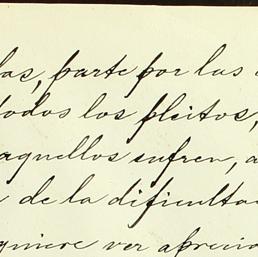 las, parte por las
todos los pleitos,
aquellos sufren, a
de la dificulta
quiere ver aprecia